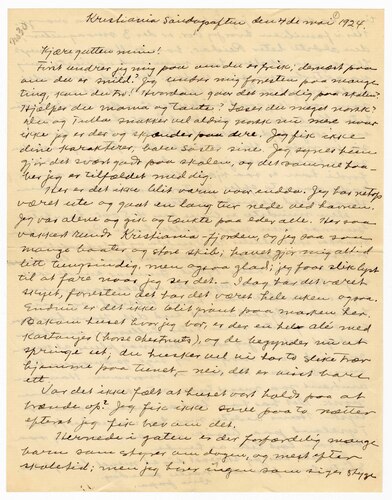 Kristiania Søndagsaften den 4de mai 1924.
Kjæregutten min!
Fint undres jeg paa om du er frisk, dernæst paa
om du er snild? Jeg undres mig forresten paa mange
ting, kan du tro! Hvordan gaar det med dig paa skolen?
Hjelper du mama og tante? Læser du noget norsk?
du og Julla snakker vel aldrig norsk nu mere naar
ikke jeg er der og skjænder paa dere. Jeg fik ikke
dine karakterer, bare Søster sine. Jeg synes hun
gjør det svært godt paa skolen, og det samme haa-
ber jeg er tilfældet med dig.
Her er det ikke blit varm vaar endda. Jeg har netop
været ute og gaat en lang tur nede ved havnen.
Jeg var alene og gik og tænkte paa eder alle. Her saa
vakkert rundt Kristiania fjorden, og jeg saa saa
mange baater og store skibe, havet gjør mig altid
litt tungsindig, men ogsaa glad; jeg faar slik lyst
til at fare naar jeg ser det. – I dag har det været
skyet, forresten det har det været hele uken ogsaa.
Endnu er det ikke blit grønt paa marken her.
Bakom huset hvor jeg bor, er der en hel alé med
Kastanjer (horse chestnuts), og de begynder nu at
springe ut, du husker vel vi hadde slike trær
hjemme paa tunet, – nei, det er vist bare
ett
Var det ikke fælt at huset vort holdt paa at
brænde op? Jeg fik ikke sove paa to nætter
efterat jeg fik brev om det.
Hernede i gaten er der forfærdelig mange
barn som styrer om dagen, og mest efter
skoletid; men jeg hører ingen som siger stygge